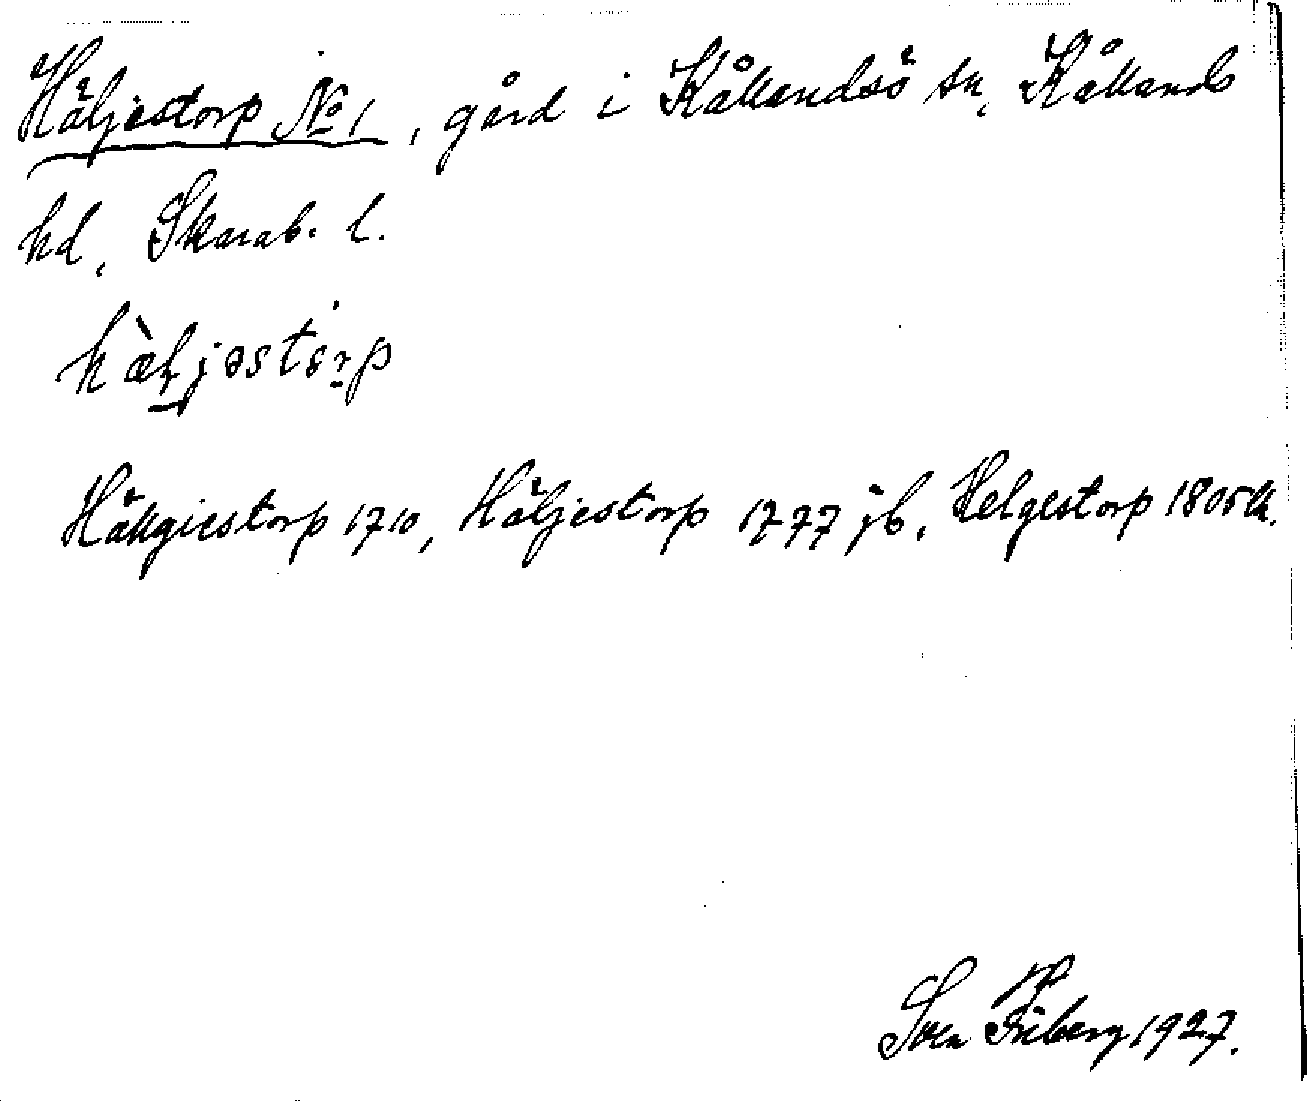 Häljestorp No 1, gård i Kållandsö sn, Kållands
hd, Skarab. l.
hàljəstorp
Hällgiestorp 1710, Häljestorp 1777 jb, Helgestorp 1805
Sven Friberg 1927.